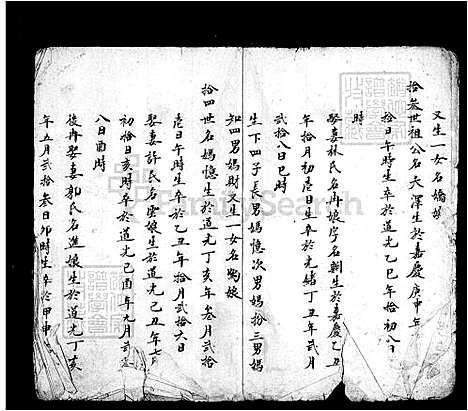 又生一女名嬌娘
拾叁世祖公名天澤生於嘉慶庚申年
拾日午時生卒於道光乙巳年拾初八日
時
娶妻林氏名冉娘字名朝生於嘉慶乙丑
年拾月初 日生卒於光緒丁丑年貳月
貳拾八日巳時
生下四子長男媽憶次男媽扮三男媽
知四男媽財又生一女名 娘
拾四世名媽憶生於道光丁亥年叁月貳拾
日午時生卒於乙丑年拾月貳拾六日
娶妻許氏名 娘生於道光己丑年七
初拾日亥時卒於道光己酉年九月
八日酉時
後再娶妻郭氏名進娘生於道光丁亥
年五月貳拾叁日卯時生卒於甲申
FamilySearch